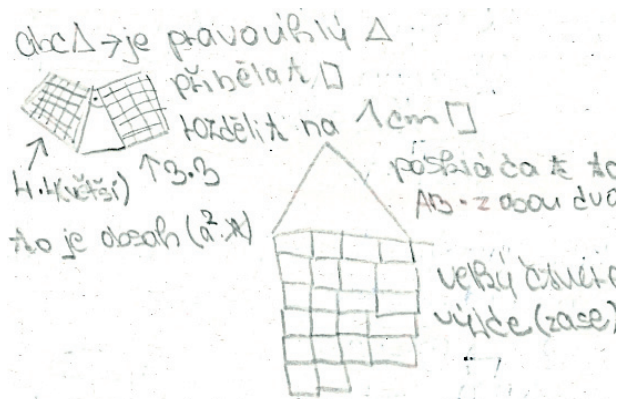 abc△ → je pravoúhlý △
přidělat □
rozdělit na 1cm □
4.4(větší)
↑3.3
to je obsah (a².
poskládat to
AB. z obou dvo
velký čtvere
výjde (zase)